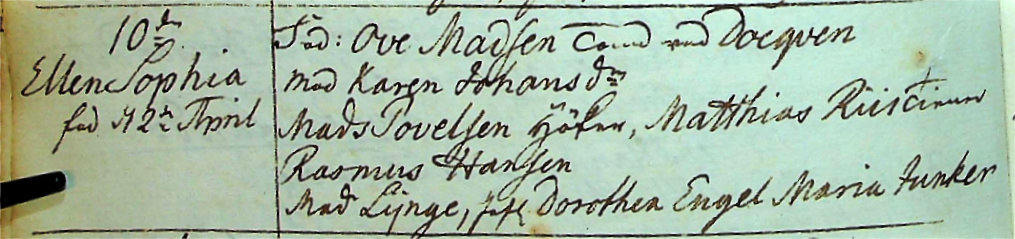 10de
Ellen Sophia
fød d 2de April
Fad: Ove Madsen Tømd ved Docqven
Mod Karen Johansdr
Mads Povelsen Höker, Matthias
Rasmus Hansen
Mad Lÿnge, Jfr Dorothea Engel Maria Junker